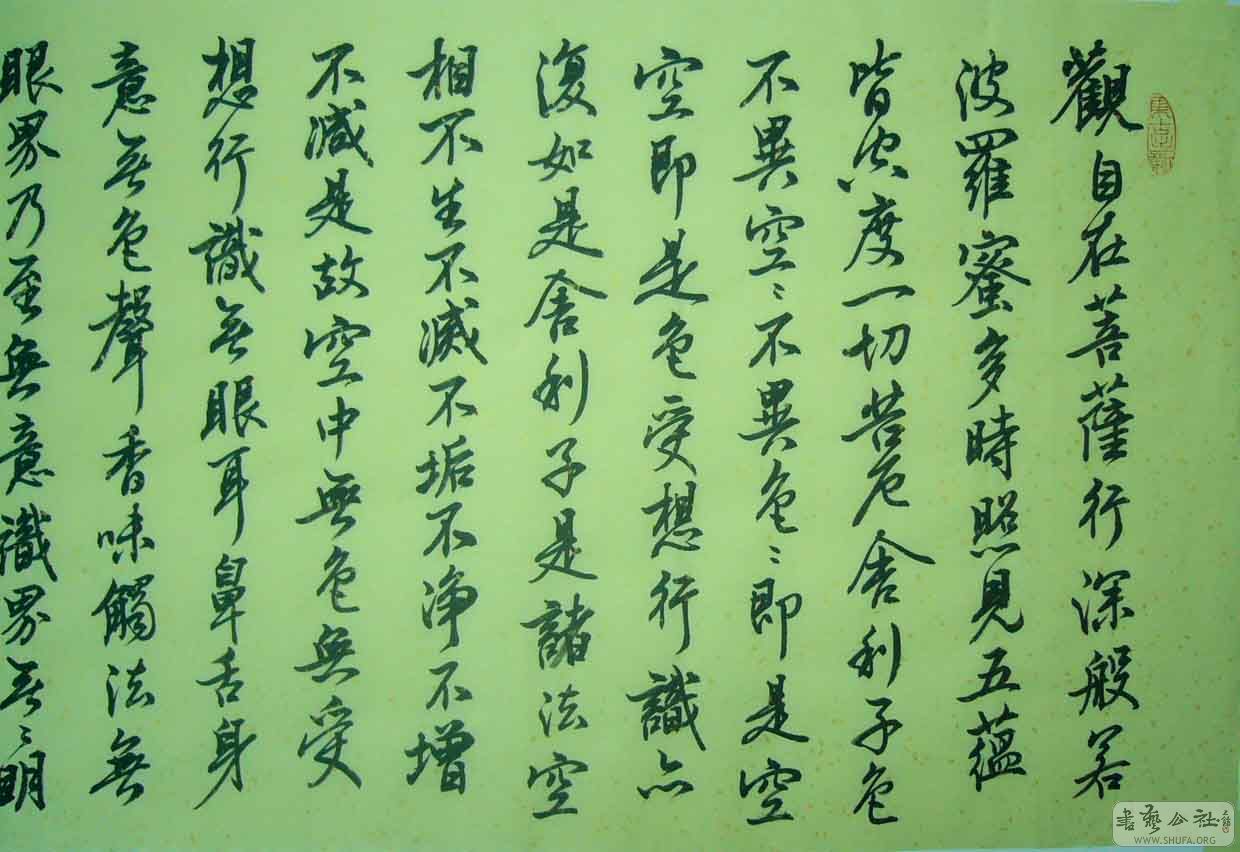 觀自在菩薩行深般若
波羅蜜多時照見五蘊
皆空度一切苦厄舍利子色
不異空〻不異色〻即是空
空即是色受想行識亦
復如是舍利子是諸法空
相不生不滅不垢不净不增
不減是故空中無色無受
想行識無眼耳鼻舌身
意無色聲香味觸法無
眼界乃至無意識界無〻明
書藝公社
WWW.SHUFA.ORG